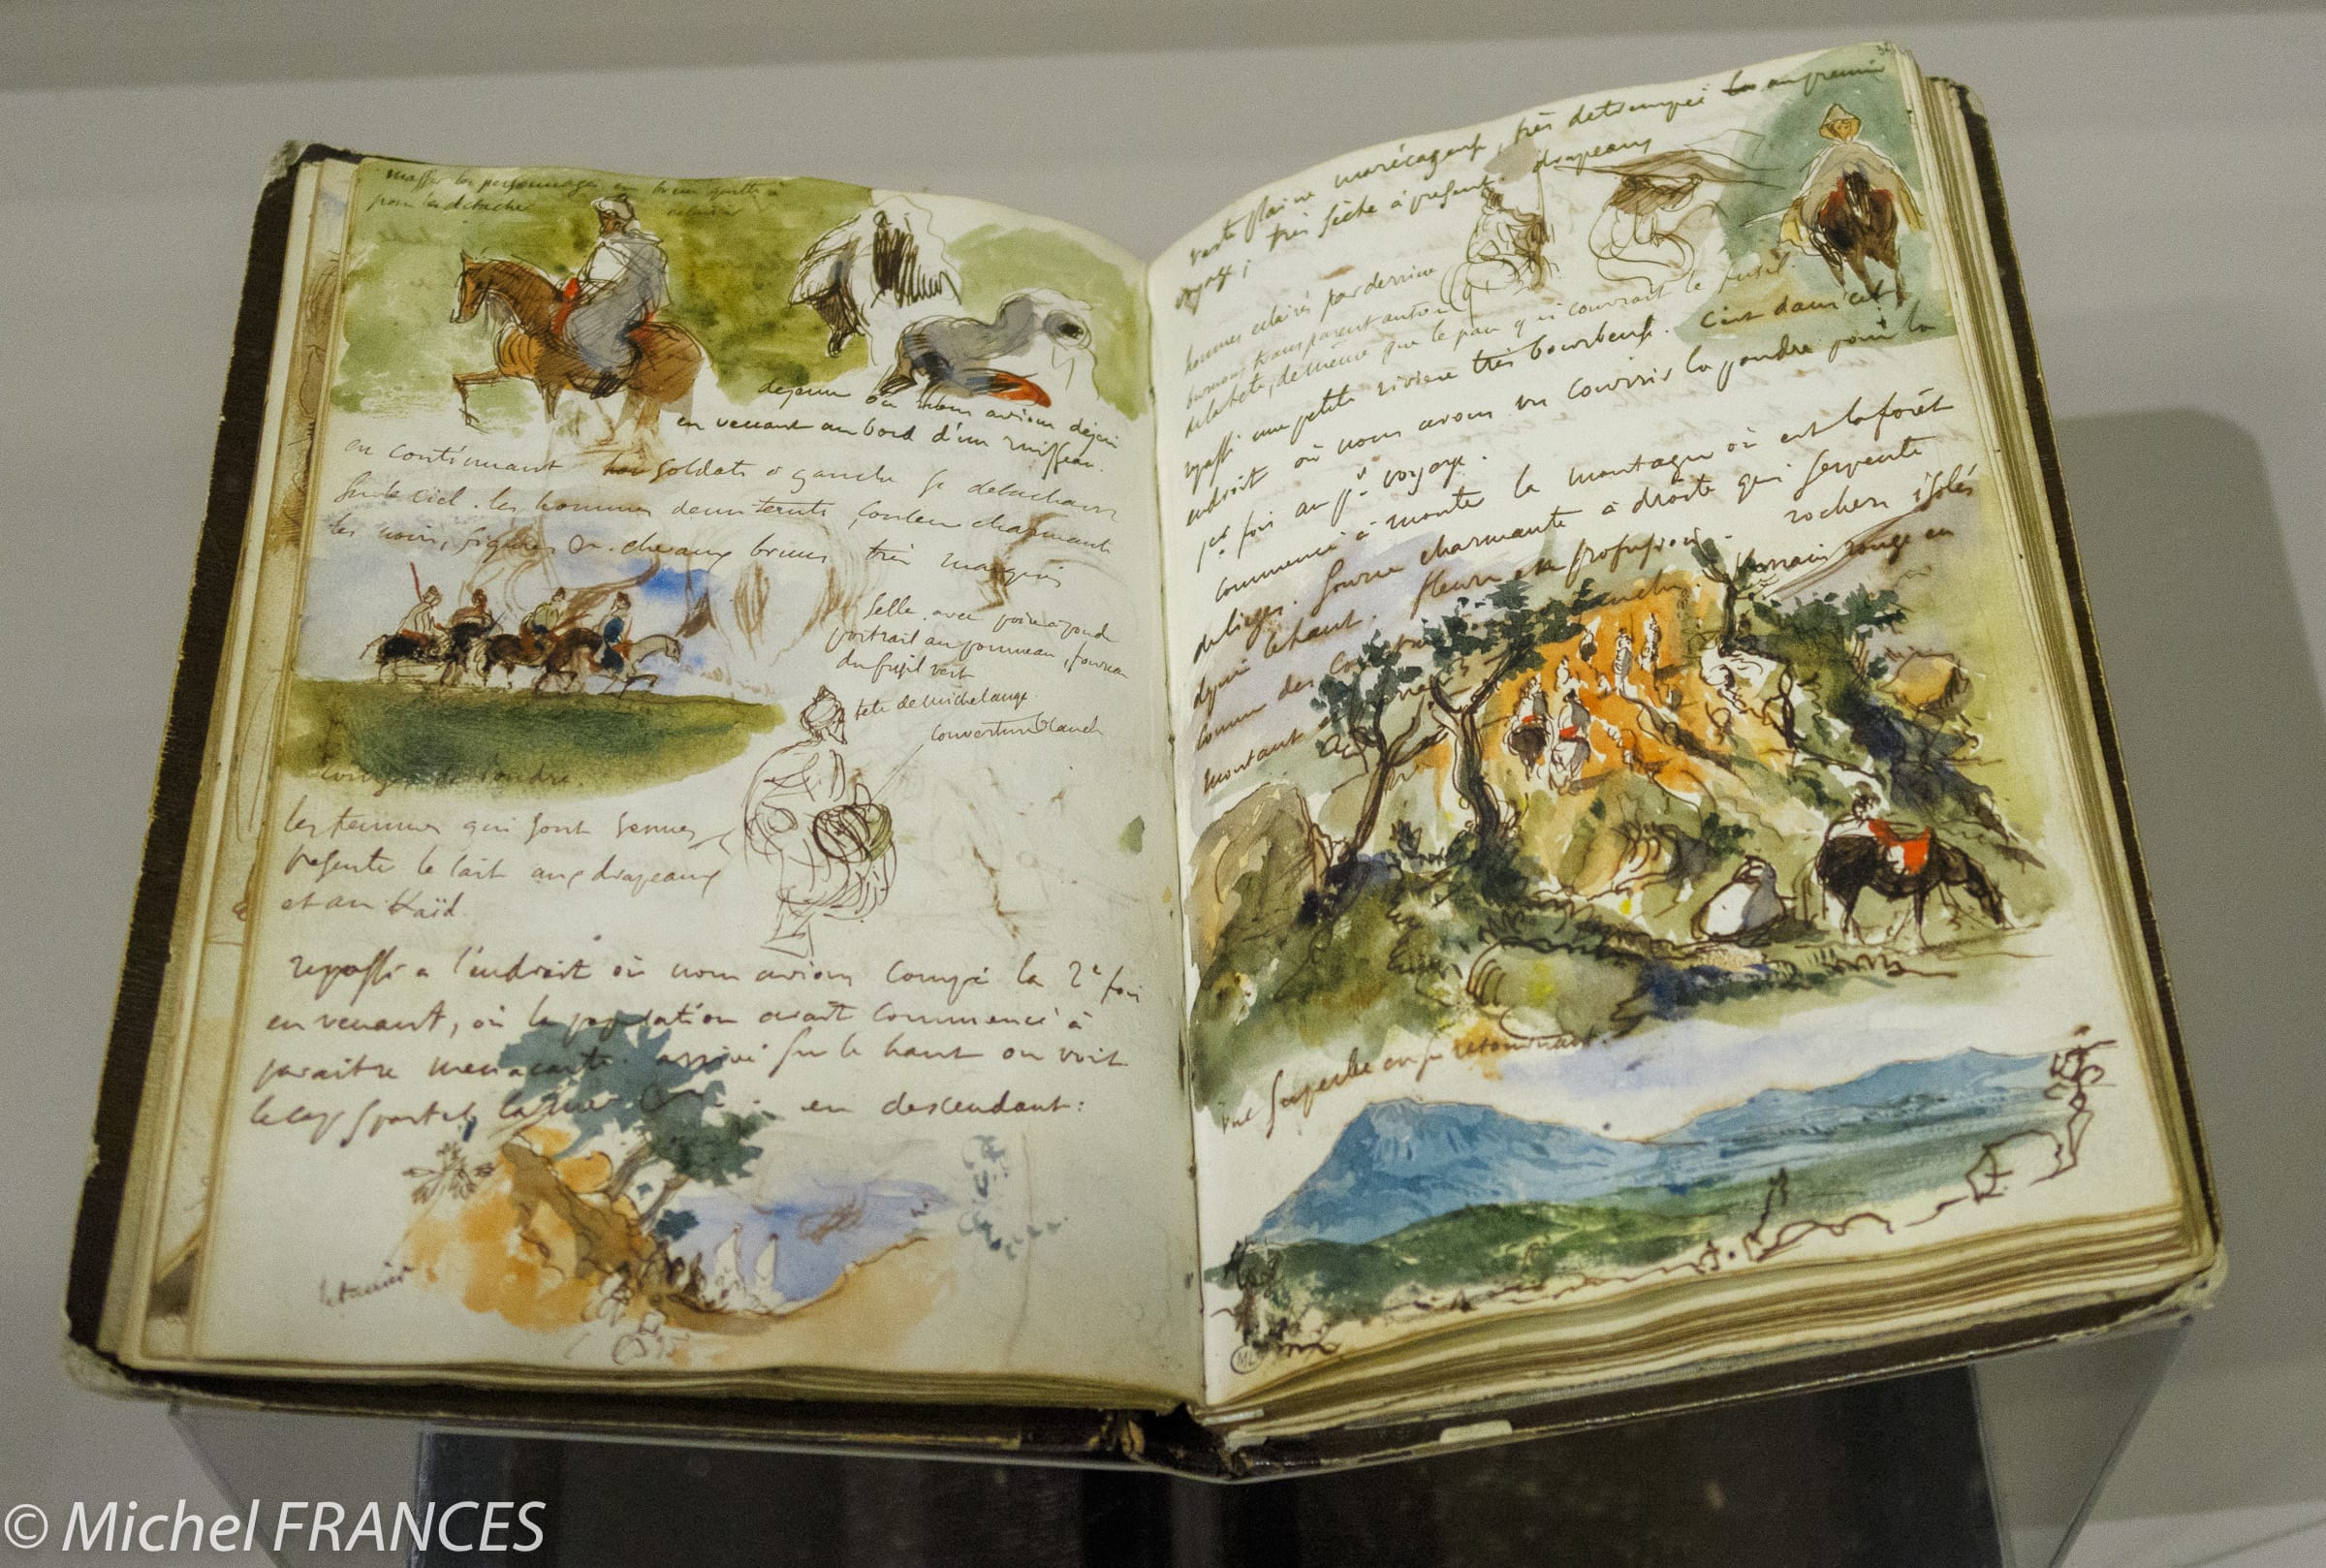 masser les personnages en brun quitte à
pour les détacher
dejeuné où nous avions déjeuné
en venant au bord d'un ruisseau.
en continuant soldats à gauche se detachant
sur le ciel. les hommes demi teinte, couleur charmante
les noirs, figures chevaux bruns très marqués
Selle avec
portrait au pommeau, fourreau
du fusil vert
tete de michelange
couverture blanch
courses de Poudre.
les femmes qui sont venues
presenter le lait aux drapeaux
et au Kaïd
repassé à l'endroit où nous avions campé la 2e fois
en venant, où la population avait commencé à
paraitre menacante. arrivé sur le haut on voit
le cap Spartel, la mer . en descendant:
34
vaste plaine marécageuse, très detrempée au premier
voyage; très sèche à present. drapeaux
hommes eclairés par derrière
burnous transparent autour
de la tête, de même que le pan qui couvrait le fusil.
repassé une petite rivière très bourbeuse. C'est dans cet
endroit où nous avons vu courir la poudre pour la
pre fois au pr voyage.
commencé à monter la montagne où est la forêt
de lièges. Source charmante à droite qui serpente
depuis le haut. fleurs en profusion. rochers isolés
comme des constructions terrain rouge en
montant
vue superbe en se retournant.
ML
© Michel FRANCES